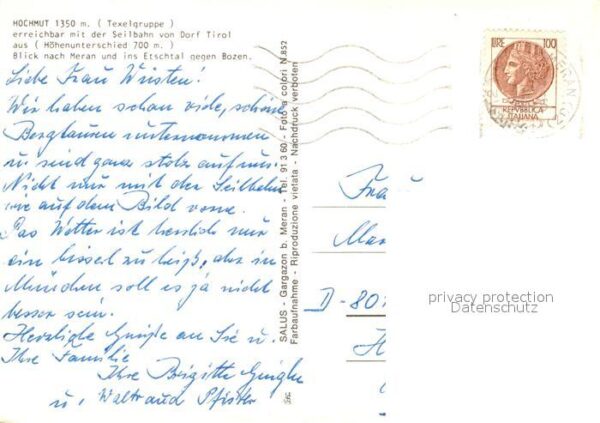 HOCHMUT 1350 m. ( Texelgruppe )
erreichbar mit der Seilbahn von Dorf Tirol
aus ( Höhenunterschied 700 m. )
Blick nach Meran und ins Etschtal gegen Bozen.
Liebe Frau Wristen!
Wir haben schon viele, schöne
Bergtouren unternommen
u. sind ganz stolz auf uns.
Nicht nur mit der Seilbahn
wie auf dem Bild vorne.
Das Wetter ist herrlich nur
ein bissel zu heiß, aber in
München soll es ja nicht
besser sein.
Herzliche Grüße an Sie u.
Ihre Familie
Ihre Brigitte
u. Waltraud Pfister
SALUS - Gargazon b. Meran - Tel. 91 3 60 - Foto a colori N. 852
Farbaufnahme - Riproduzione vietata - Nachdruck verboten
LIRE 100
REPVBBLICA
ITALIANA
Frau
D-80
privacy protection
Datenschutz